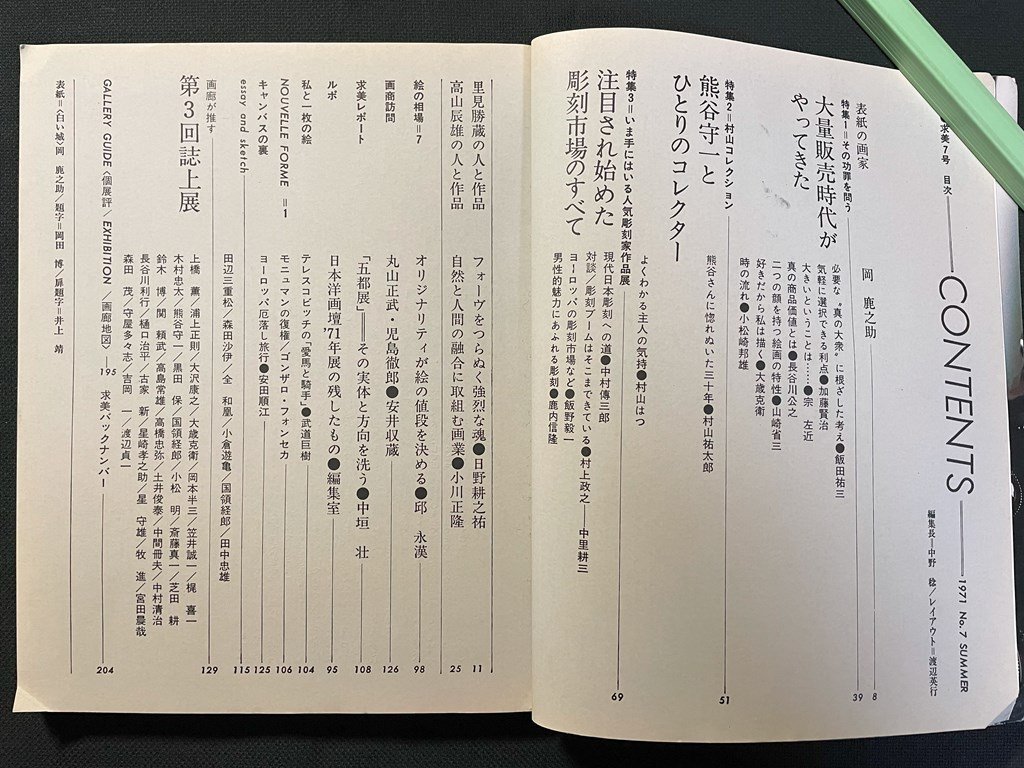 求美7号 目次 CONTENTS 1971 No.7 SUMMER
編集長=中野 稔/レイアウト=渡辺英行
表紙の画家 岡 鹿之助 8
特集1=その功罪を問う
大量販売時代が
やってきた 39
必要な“真の大衆”に根ざした考え●飯田祐三
気軽に選択できる利点●加藤賢治
大きいということは……●宗 左近
真の商品価値とは●長谷川公之
二つの顔を持つ絵画の特性●山崎省三
好きだから私は描く●大歳克衛
時の流れ●小松崎邦雄
特集2=村山コレクション 51
熊谷守一と
ひとりのコレクター
熊谷さんに惚れぬいた三十年●村山祐太郎
よくわかる主人の気持●村山はつ
特集3=いま手にはいる人気彫刻家作品展 69
注目され始めた
彫刻市場のすべて
現代日本彫刻への道●中村傳三郎
対談/彫刻ブームはそこまできている●村上政之――中里耕三
ヨーロッパの彫刻市場など●飯野毅一
男性的魅力にあふれる彫刻●鹿内信隆
里見勝蔵の人と作品 フォーヴをつらぬく強烈な魂●日野耕之祐 11
高山辰雄の人と作品 自然と人間の融合に取組む画業●小川正隆 25
絵の相場=7 オリジナリティが絵の値段を決める●邱 永漢 98
画商訪問 丸山正武・児島徹郎●安井収蔵 126
求美レポート 「五都展」=その実体と方向を洗う●中垣 壮 108
ルポ 日本洋画壇'71年展の残したもの●編集室 95
私と一枚の絵 テレスコビッチの「愛馬と騎手」●武道巨樹 104
NOUVELLE FORME =1 モニュマンの復権/ゴンザロ・フォンセカ 106
キャンバスの裏 ヨーロッパ厄落し旅行●安田順江 125
essay and sketch 田辺三重松/森田沙伊/全 和凰/小倉遊亀/国領経郎/田中忠雄 115
画廊が推す 129
第3回誌上展
上橋 薫/浦上正則/大沢康之/大歳克衛/岡本半三/笠井誠一/梶 喜一
木村忠太/熊谷守一/黒田 保/国領経郎/小松 明/斎藤真一/芝田 耕
鈴木 博/関 頼武/高島常雄/高橋忠弥/土井俊泰/中間冊夫/中村清治
長谷川利行/樋口治平/古家 新/星崎孝之助/星 守雄/牧 進/宮田晨哉
森田 茂/守屋多々志/吉岡 一/渡辺貞一
GALLERY GUIDE〈個展評/EXHIBITION/画廊地図〉――195 求美バックナンバー 204
表紙=〈白い城〉岡 鹿之助/題字=岡田 博/扉題字=井上 靖